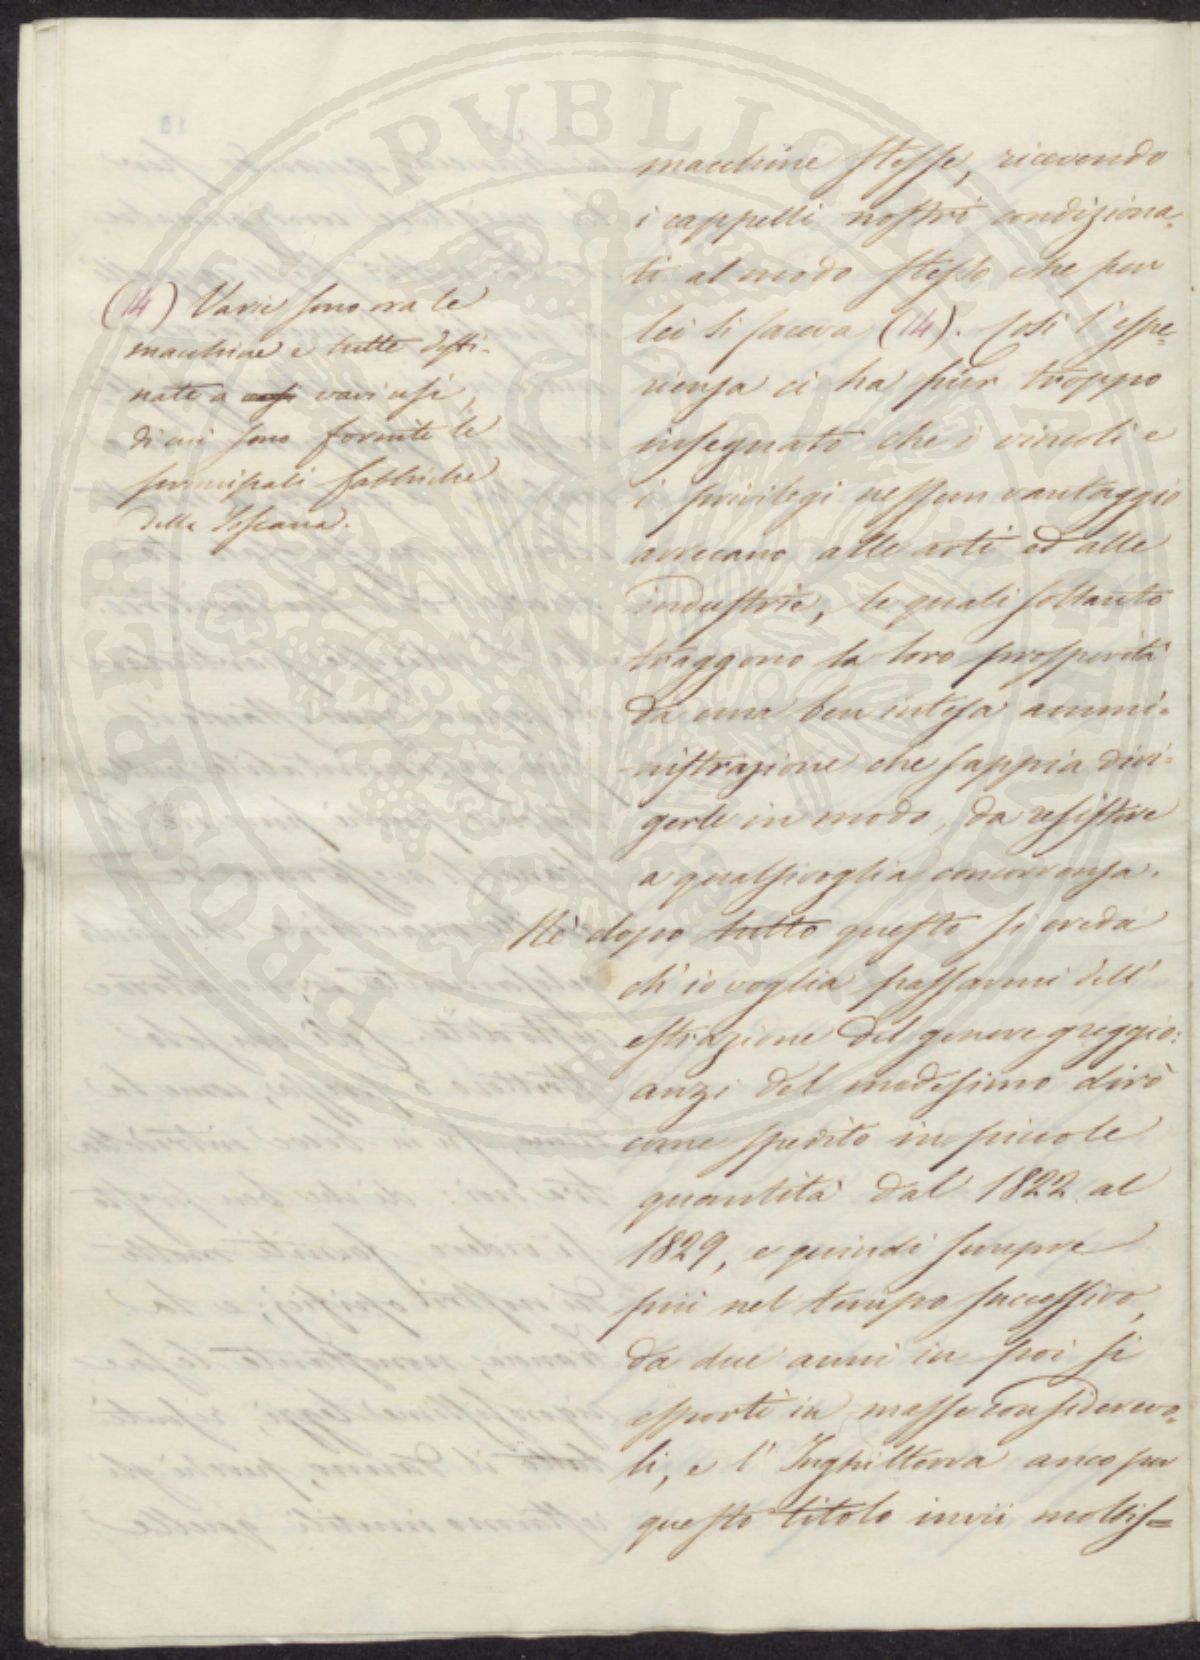 macchine stesse, ricevendo
i cappelli nostri condiziona=
ti al modo stesso che per
lei si faceva (14). Così l'espe=
rienza ci ha pur troppo
insegnato che i vincoli e
i privilegi nessun vantaggio
arrecano alle arti ed alle
industrie, le quali soltanto
traggono la loro prosperità
da una ben intesa ammi=
nistrazione che sappia diri=
gerle in modo, da resistere
a qualsivoglia concorrenza.
Nè dopo tutto questo si creda
ch'io voglia passarmi dell'
estrazione del genere greggio:
anzi del medesimo dirò
come spedito in piccole
quantità dal 1822 al
1829, e quindi sempre
più nel tempo successivo,
da due anni in poi si
esporti in masse considerevo=
li, e l'Inghilterra anco per
questo titolo invii moltis=
(14) Varie sono ora le
macchine e tutte desti-
nate a varj usi,
di cui sono fornite le
principali fabbriche
della Toscana.
PROSPERITATI PUBLICAE